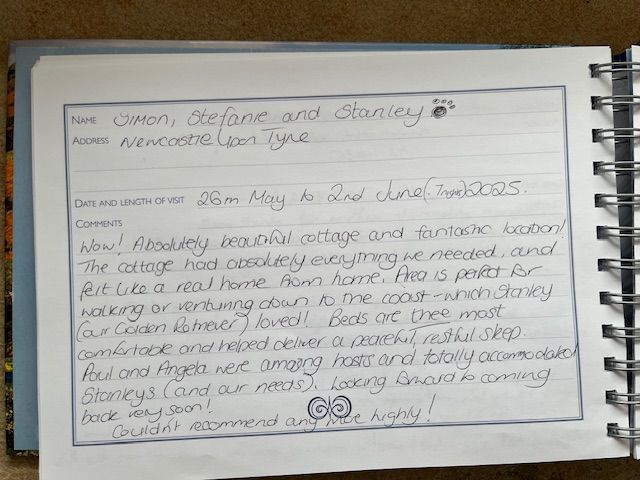 NAME Simon, Stefanie and Stanley
ADDRESS Newcastle Upon Tyne
DATE AND LENGTH OF VISIT 26th May to 2nd June (7 nights) 2025.
COMMENTS
Wow! Absolutely beautiful cottage and fantastic location!
The cottage had absolutely everything we needed, and
felt like a real home from home. Area is perfect for
walking or venturing down to the coast - which Stanley
(our Golden Retriever) loved! Beds are thee most
comfortable and helped deliver a peaceful, restful sleep.
Paul and Angela were amazing hosts and totally accommodated
Stanleys (and our needs). Looking forward to coming
back very soon!
Couldn't recommend any more highly!